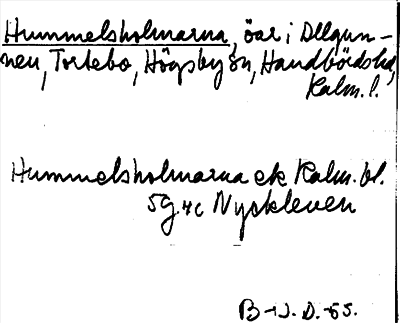 Hummelsholmarna, öar i Allgun-
nen, Tortebo, Högsby sn, Handbördshd,
Kalm. l.
Hummelsholmarna ek Kalm. bl.
5g 4c Nyckleven
B-J. D. -55.